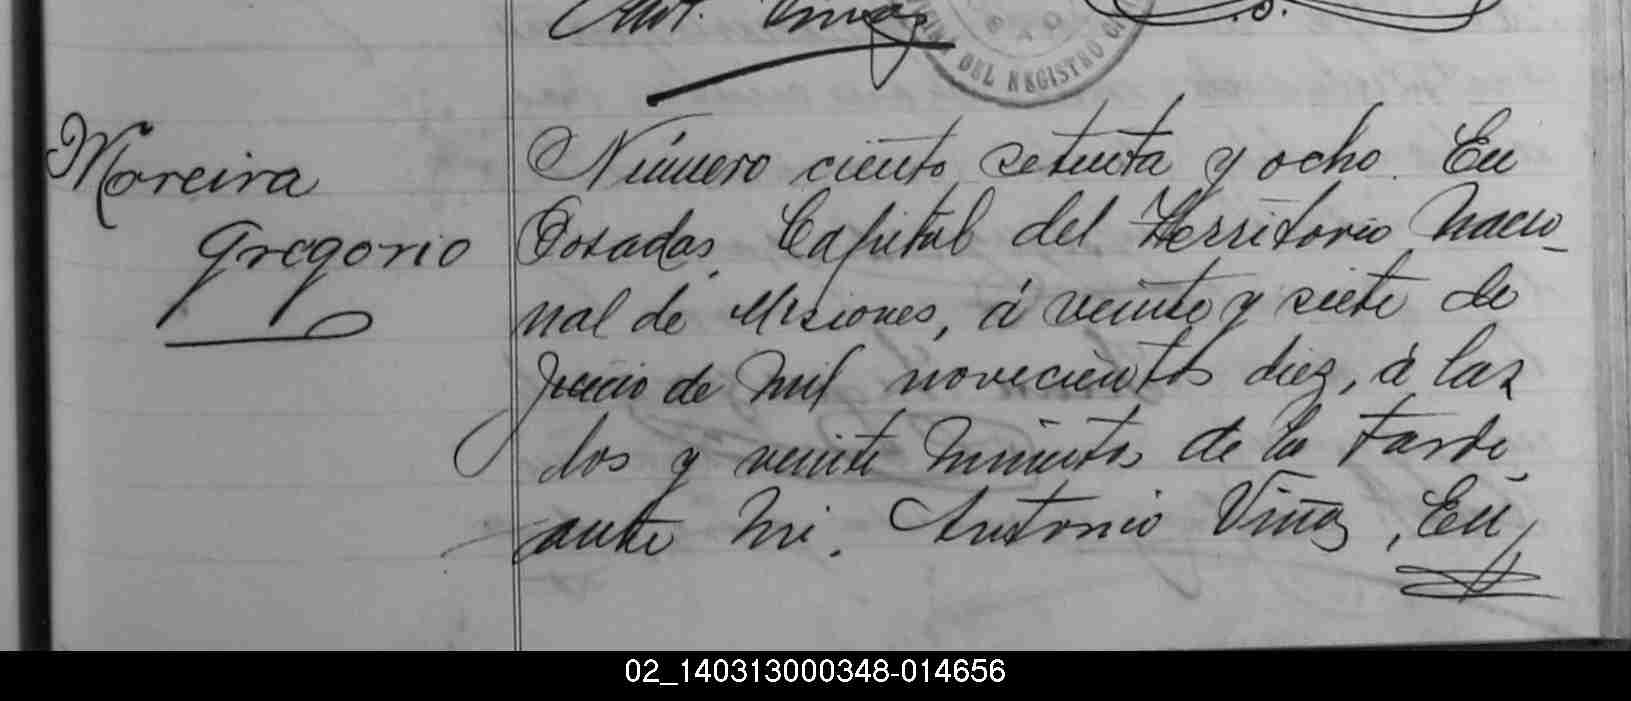 Ant. Viñas
DEL REGISTRO CI
Moreira
Gregorio
Número ciento setenta y ocho. En
Posadas, Capital del Territorio Nacio-
nal de Misiones, á veinte y siete de
Junio de mil novecientos diez, á las
dos y veinte minutos de la tarde,
ante mi, Antonio Viñas, En
02_140313000348-014656